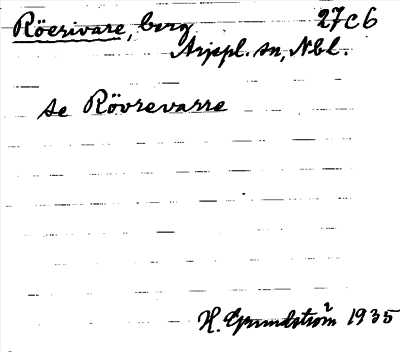 Röerivare, berg 27C6
Arjepl. sn, Nbl.
se Rövrevarre
H. Grundström 1935